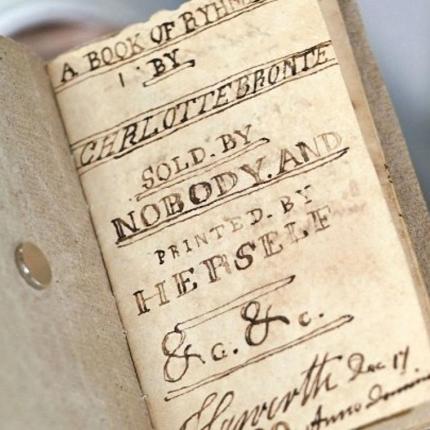 A BOOK OF RYHM
BY
CHARLOTTE BRONTE
SOLD. BY
NOBODY. AND
PRINTED. BY
HERSELF
&c. &c.
Haworth Dec 17
Anno domini